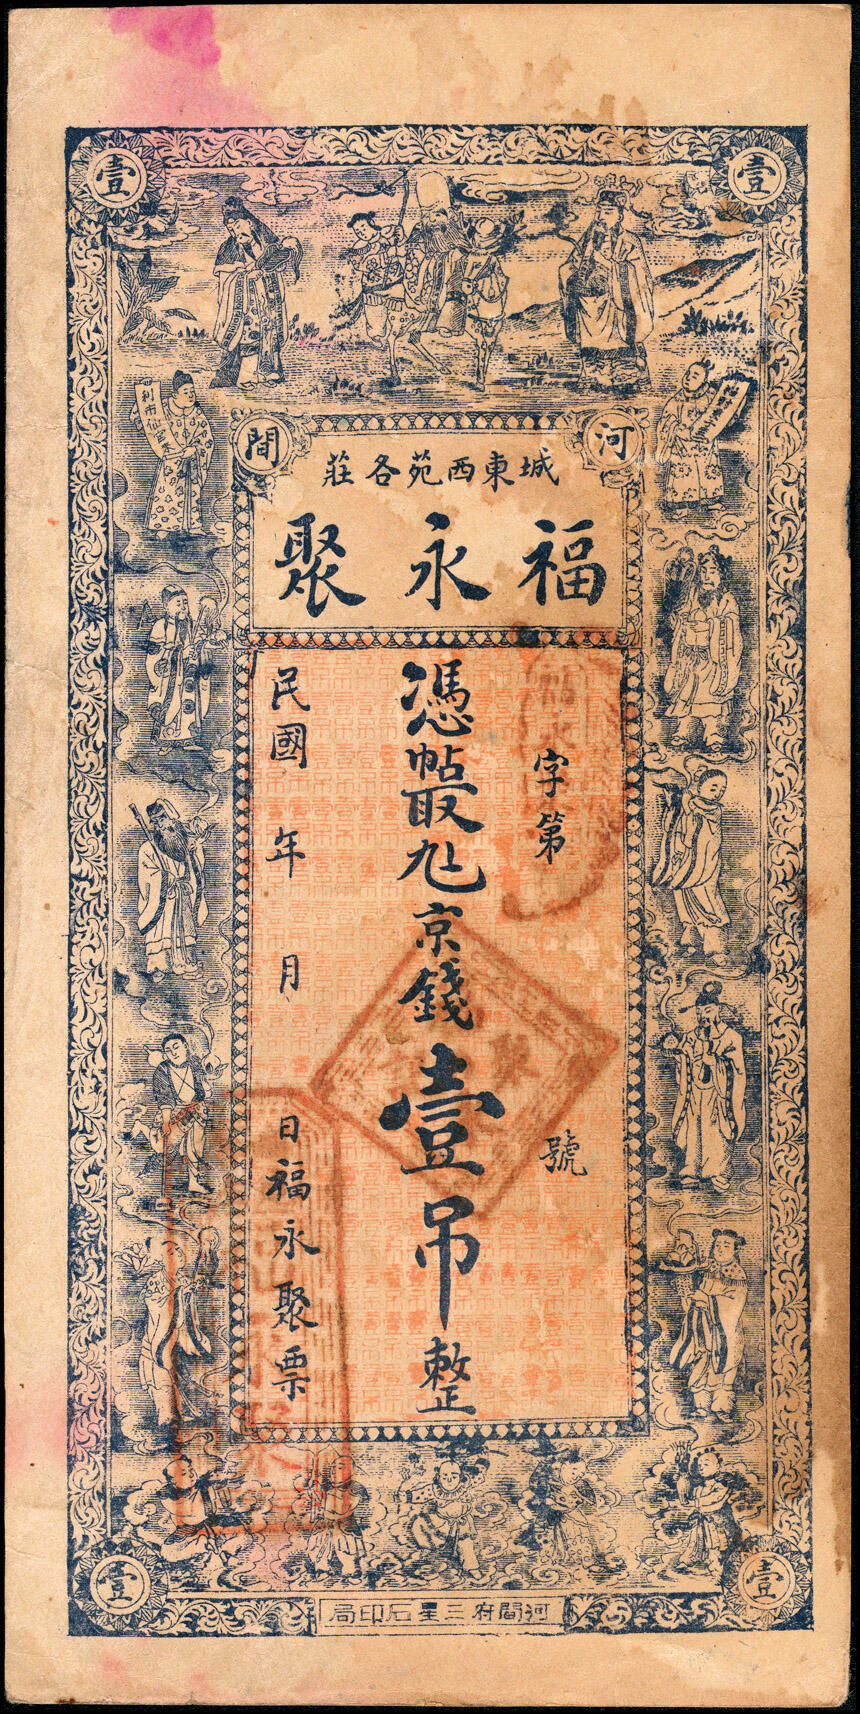 壹 壹
河間
城東西苑各莊
福永聚
字第 號
憑帖取九七京錢壹吊整
民國 年 月 日福永聚票
利市仙官
壹 壹
河間府三星石印局